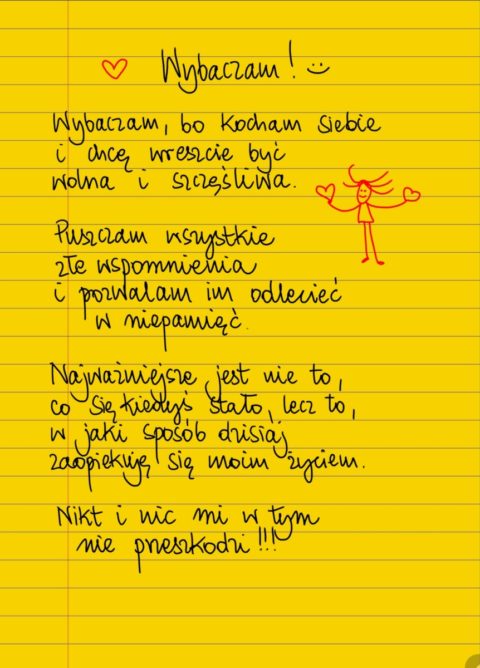 Wybaczam! :)
Wybaczam, bo kocham siebie
i chcę wreszcie być
wolna i szczęśliwa.
Puszczam wszystkie
złe wspomnienia
i pozwalam im odlecieć
w niepamięć.
Najważniejsze jest nie to,
co się kiedyś stało, lecz to,
w jaki sposób dzisiaj
zaopiekuję się moim życiem.
Nikt i nic mi w tym
nie przeszkodzi!!!